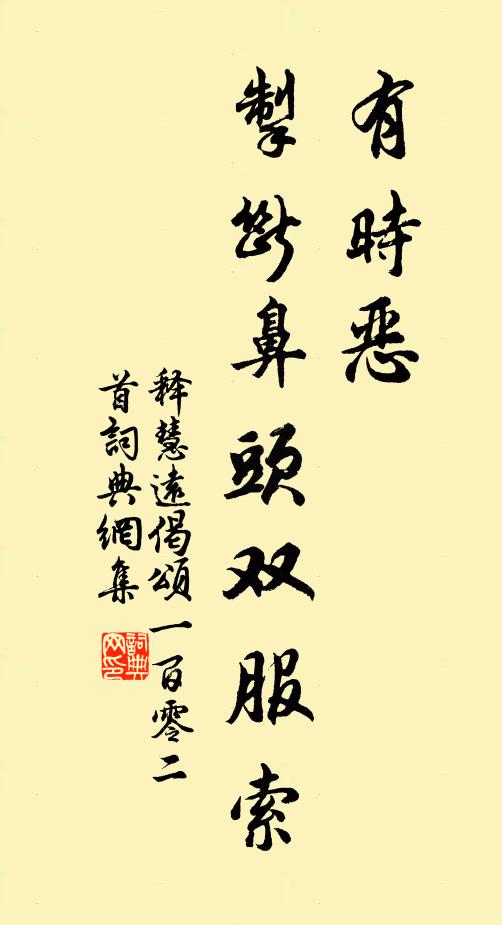 有時惡
掣斷鼻頭双服索
釋慧遠偈頌一百零二
首詞典網集
詞典
网印